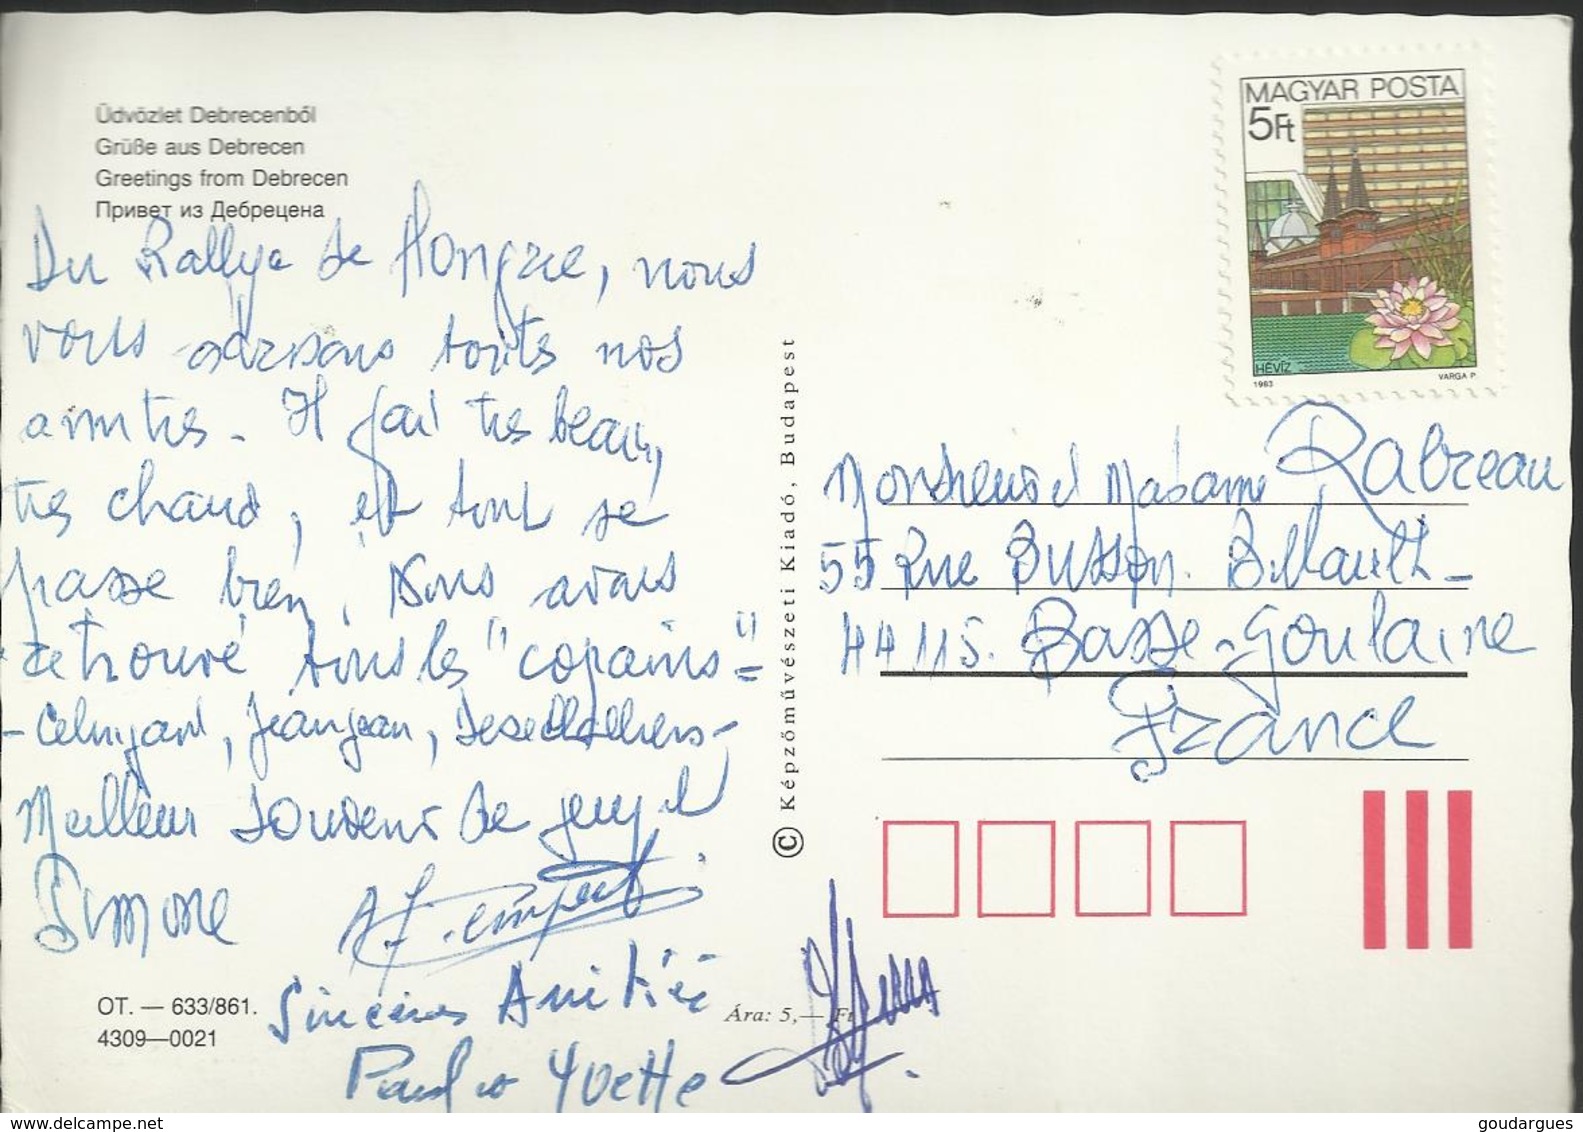 Üdvözlet Debrecenből
Grüße aus Debrecen
Greetings from Debrecen
Привет из Дебрецена
Du Rallye de Hongrie, nous
vous adressons toutes nos
amitiés - Il fait très beau,
très chaud, et tout se
passe bien. Nous avons
retrouvé tous les "copains"
Jeanjean,
Meilleur souvenir de
Simone
Sincères Amitiés
Yvette
OT. — 633/861.
4309—0021
Ára: 5,— Ft
© Képzőművészeti Kiadó, Budapest
MAGYAR POSTA
5Ft
HÉVÍZ
1983 VARGA P.
Monsieur et Madame Rabreau
55 Rue Busson Billault -
44115. Basse-Goulaine
France
www.delcampe.net
goudargues